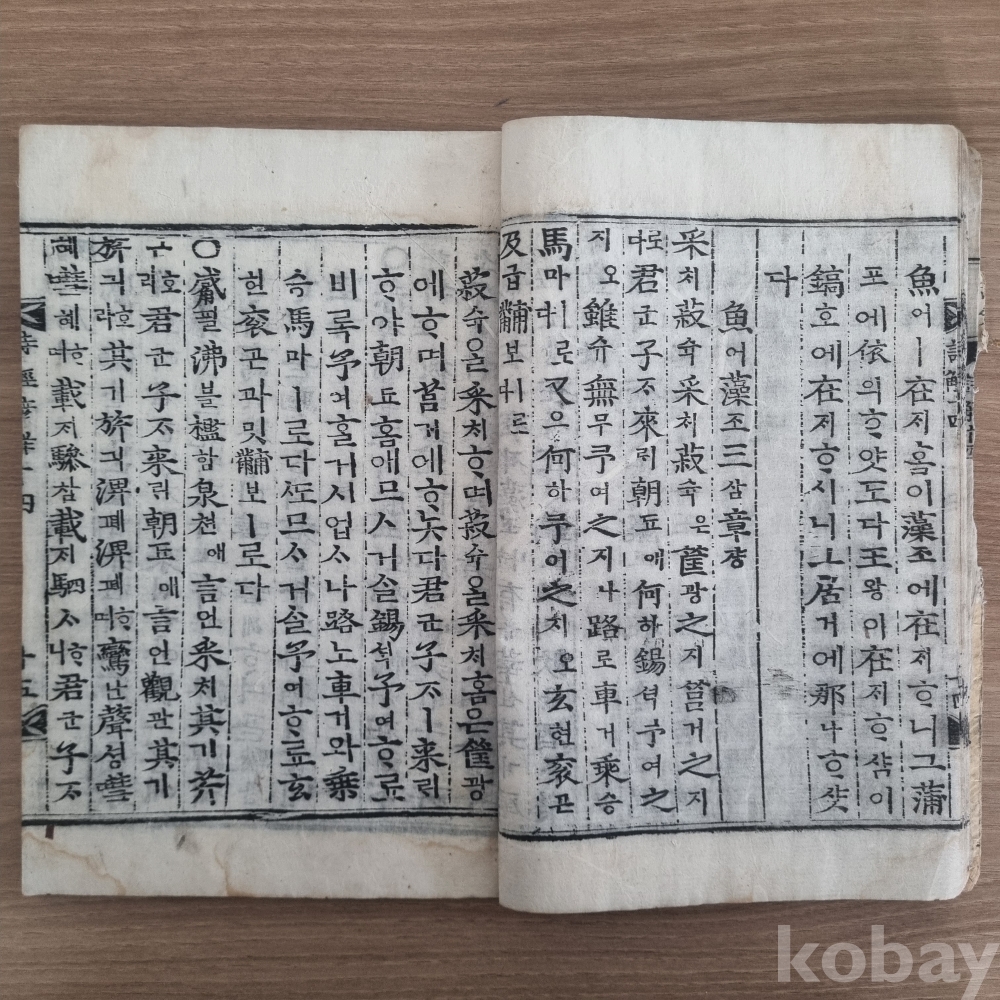 魚어ㅣ在ᄌᆡ홈이藻조에在ᄌᆡᄒᆞ니그蒲
포에依의ᄒᆞ얏도다王왕이在ᄌᆡᄒᆞ샴이
鎬호에在ᄌᆡᄒᆞ시니그居거에那나ᄒᆞ샷
다
魚어藻조三삼章쟝
采ᄎᆡ菽슉采ᄎᆡ菽슉은筐광之지筥거之지
로다君군子ᄌᆞ來ᄅᆡ朝됴애何하錫셕予여之
지오雖슈無무予여之지나路로車거乘승
馬마ㅣ로다又우何하予여之지오玄현袞곤
及급黼보ㅣ니라
菽슉을采ᄎᆡᄒᆞ며菽슉을采ᄎᆡ홈은筐광
에ᄒᆞ며筥거에ᄒᆞ놋다君군子ᄌᆞㅣ來ᄅᆡ
ᄒᆞ야朝됴홈애므스거슬錫셕予여ᄒᆞ료
비록予여ᄒᆞᆯ거시업스나路노車거와乘
승馬마ㅣ로다ᄯᅩ므스거슬予여ᄒᆞ료玄
현袞곤과밋黼보ㅣ로다
○觱필沸불檻함泉쳔애言언采ᄎᆡ其기芹
근호라君군子ᄌᆞ來ᄅᆡ朝됴애言언觀관其기
旂긔호라其기旂긔淠폐淠폐ᄒᆞ며鸞난聲셩嘒
혜嘒혜ᄒᆞ며載ᄌᆡ驂참載ᄌᆡ駟ᄉᆞᄒᆞ니君군子ᄌᆞ
詩經諺解十四
十五